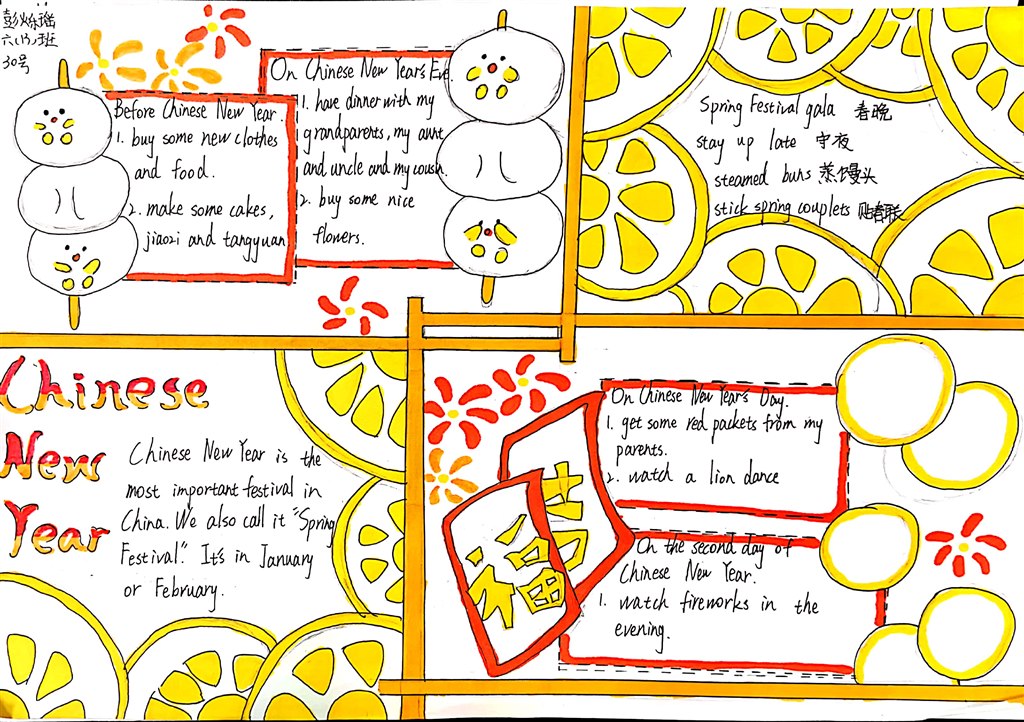 彭烁瑶
六(5)班
30号
Before Chinese New Year.
1. buy some new clothes
and food.
2. make some cakes,
jiaozi and tangyuan
On Chinese New Year's Eve.
1. have dinner with my
grandparents, my aunt
and uncle and my cousin.
2. buy some nice
flowers.
Spring Festival gala 春晚
stay up late 守夜
steamed buns 蒸馒头
stick spring couplets 贴春联
Chinese
New
Year
Chinese New Year is the
most important festival in
China. We also call it "Spring
Festival". It's in January
or February.
福
On Chinese New Year's Day.
1. get some red packets from my
parents.
2. watch a lion dance
On the second day of
Chinese New Year.
1. watch fireworks in the
evening.